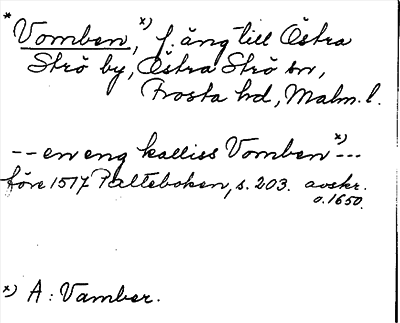 * Vomben, x) f. äng till Östra
Strö by, Östra Strö sn,
Frosta hd, Malm. l.
-- en eng kalliss Vomben x) ---
före 1517 Palteboken, s. 203. avskr.
o. 1650.
x) A: Vamber.